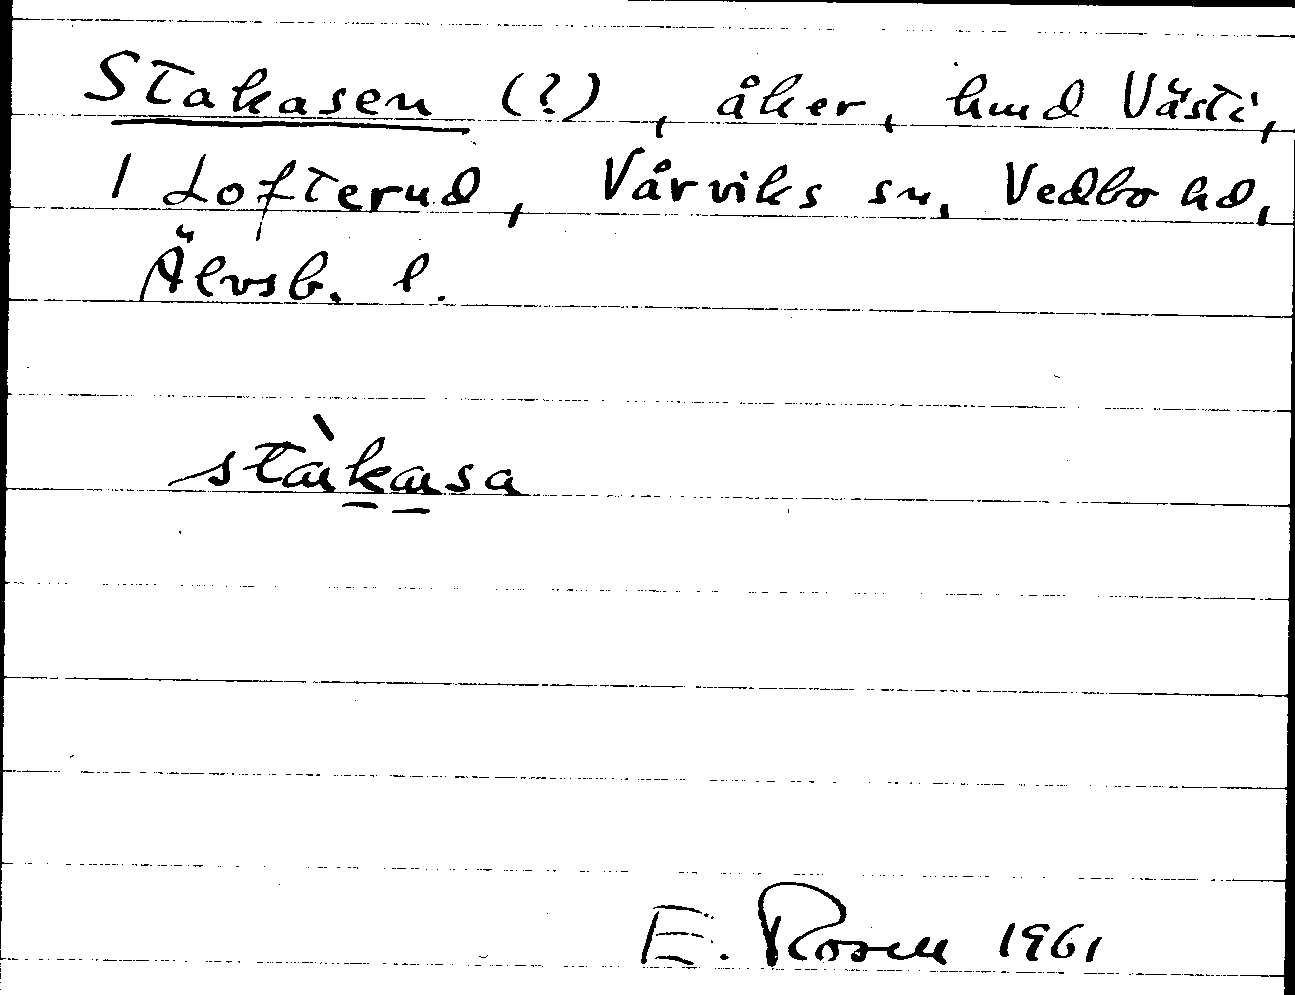 Stakasen (?), åker, hmd Västi,
1 Lofterud, Vårviks sn, Vedbo hd,
Älvsb. l.
stàkasa
E. Rosell 1961